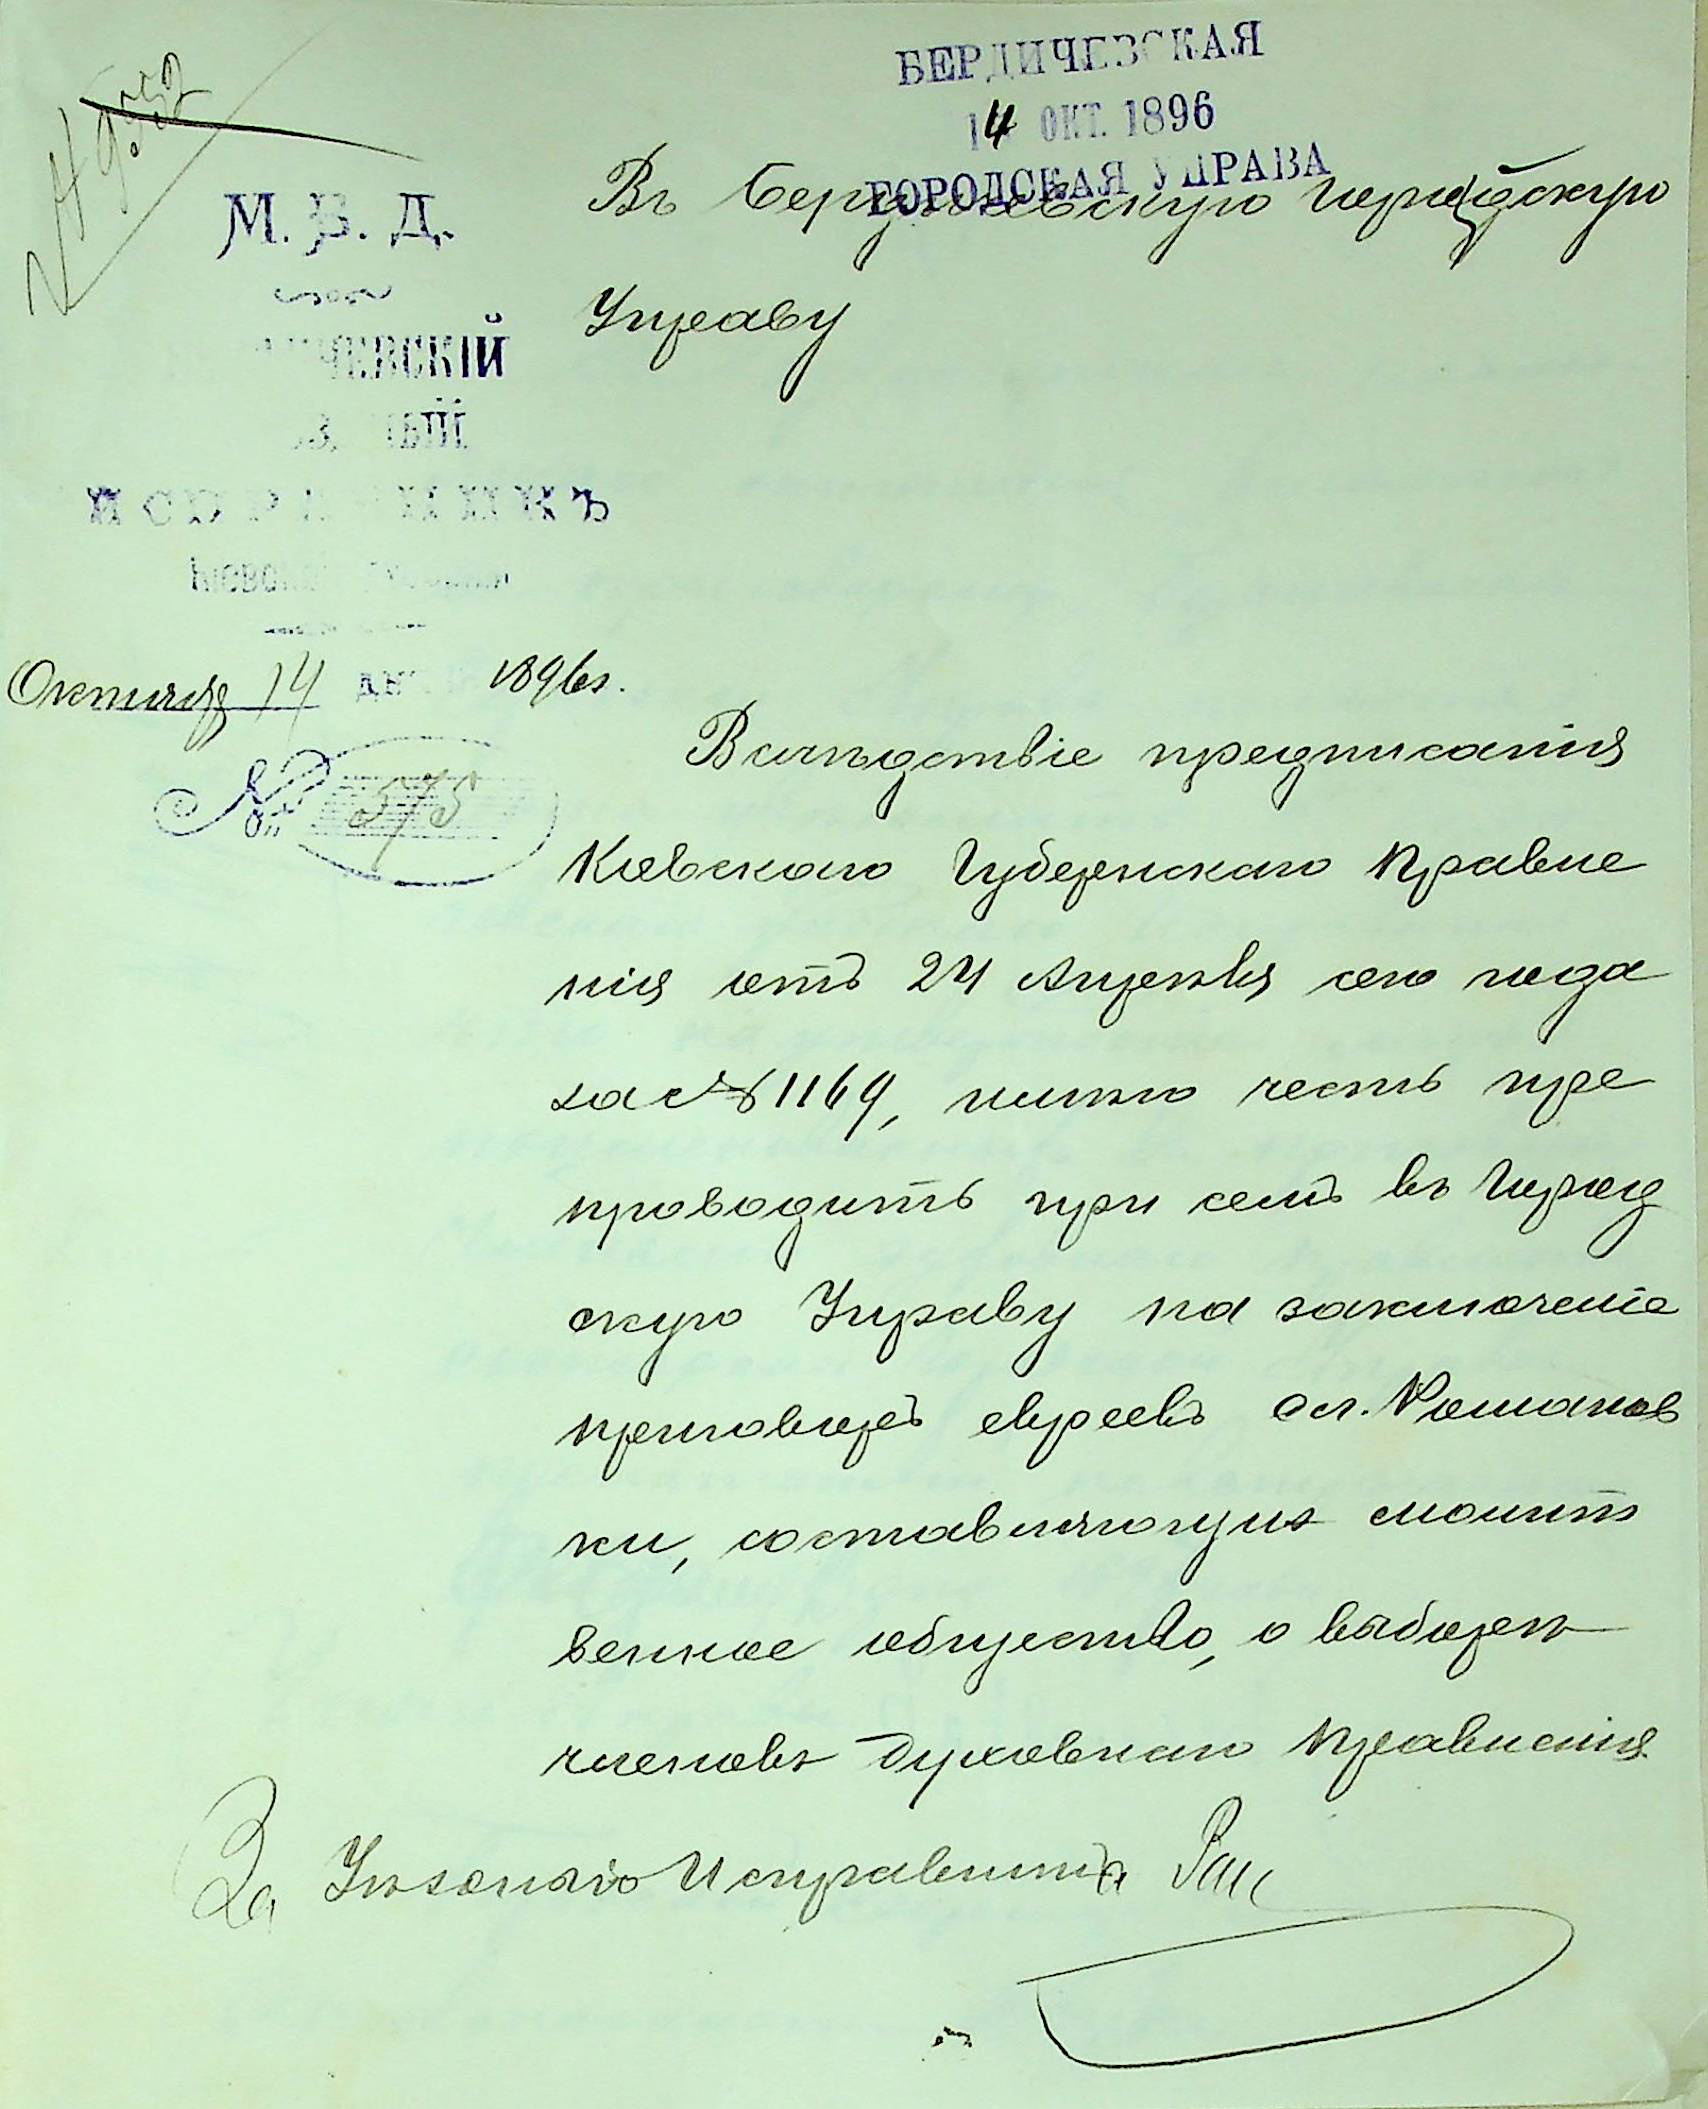 БЕРДИЧЕВСКАЯ
14 ОКТ. 1896
ГОРОДСКАЯ УПРАВА
М. В. Д.
Въ Бердичевскую Городскую
Управу
ИСПРАВНИКЪ
Октября 14 дня 1896 г.
№ 575
Вслѣдствіе предписанія
Кіевскаго Губернскаго Правле
нія отъ 24 Апрѣля сего года
за № 1169, имѣю честь пре
проводить при семъ въ Город
скую Управу на заключеніе
приговоръ евреевъ сл. Романов
ки, составляющихъ молитв
венное общество, о выборѣ
членовъ духовнаго правленія
За Уѣзднаго Исправника